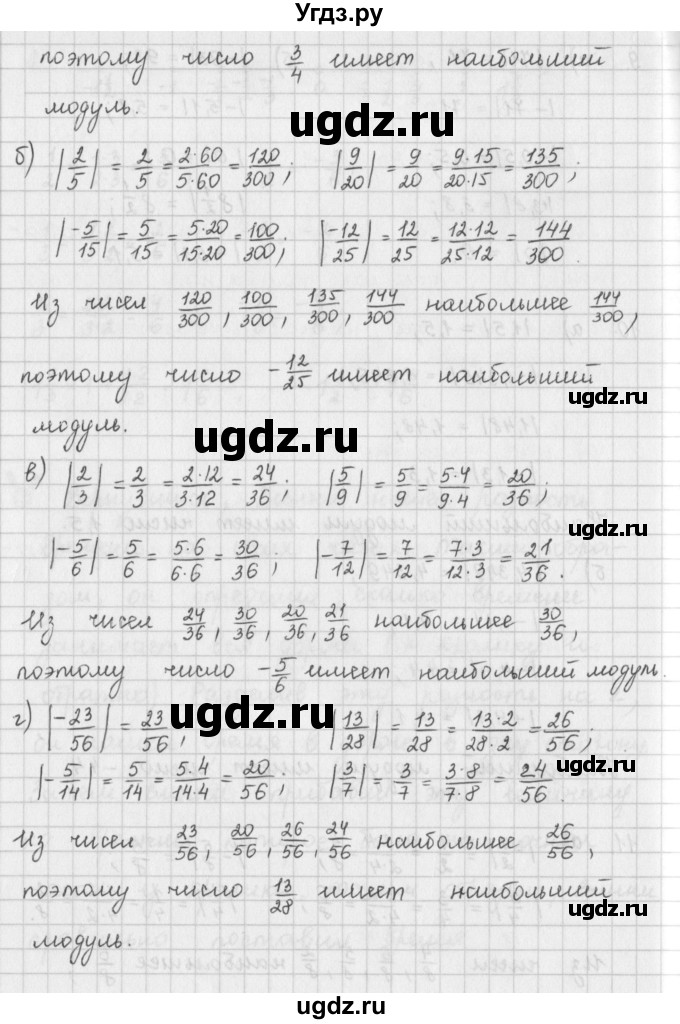 Угдз.ру
поэтому число 3/4 имеет наибольший
модуль.
ugdz.ru
б) |2/5| = 2/5 = 2·60/5·60 = 120/300; |9/20| = 9/20 = 9·15/20·15 = 135/300;
|-5/15| = 5/15 = 5·20/15·20 = 100/300; |-12/25| = 12/25 = 12·12/25·12 = 144/300.
Из чисел 120/300, 100/300, 135/300, 144/300 наибольшее 144/300,
поэтому число -12/25 имеет наибольший
ugdz.ru
модуль.
ugdz.ru
в) |2/3| = 2/3 = 2·12/3·12 = 24/36; |5/9| = 5/9 = 5·4/9·4 = 20/36;
|-5/6| = 5/6 = 5·6/6·6 = 30/36; |-7/12| = 7/12 = 7·3/12·3 = 21/36.
Из чисел 24/36, 30/36, 20/36, 21/36 наибольшее 30/36,
поэтому число -5/6 имеет наибольший модуль.
ugdz.ru
г) |-23/56| = 23/56; |13/28| = 13/28 = 13·2/28·2 = 26/56;
|-5/14| = 5/14 = 5·4/14·4 = 20/56; |3/7| = 3/7 = 3·8/7·8 = 24/56.
Из чисел 23/56, 20/56, 26/56, 24/56 наибольшее 26/56,
поэтому число 13/28 имеет наибольший
ugdz.ru
модуль.
ugdz.ru